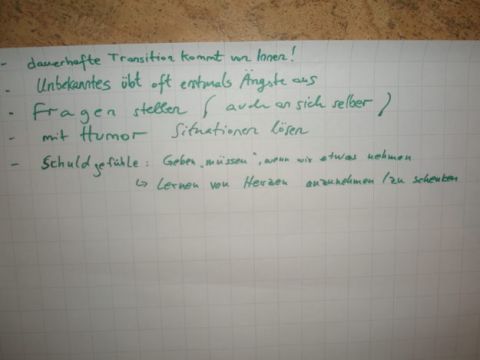 - dauerhafte Transition kommt von Innen!
- Unbekanntes übt oft erstmals Ängste aus
- Fragen stellen (auch an sich selber)
- mit Humor Situationen lösen
- Schuldgefühle: Geben "müssen", wenn wir etwas nehmen
↳ Lernen von Herzen anzunehmen / zu schenken